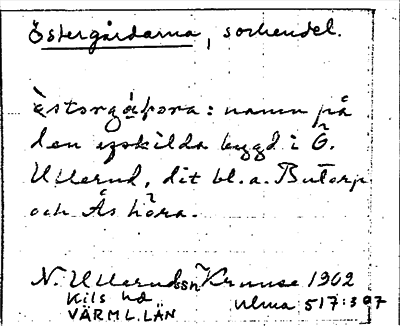 Östergårdarna, sockendel.
Èstorgápora: namn på
den enskilda bygd i Ö.
Ullerud, dit bl.a. Butorp
och Ås höra.
N. Ullerud Kruuse 1902
Kils hd
VÄRML. LÄN
Ulma 517:397